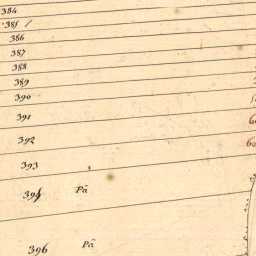 384
385
386
387
388
389
390
391
392
393
394 Pâ
396 Pâ